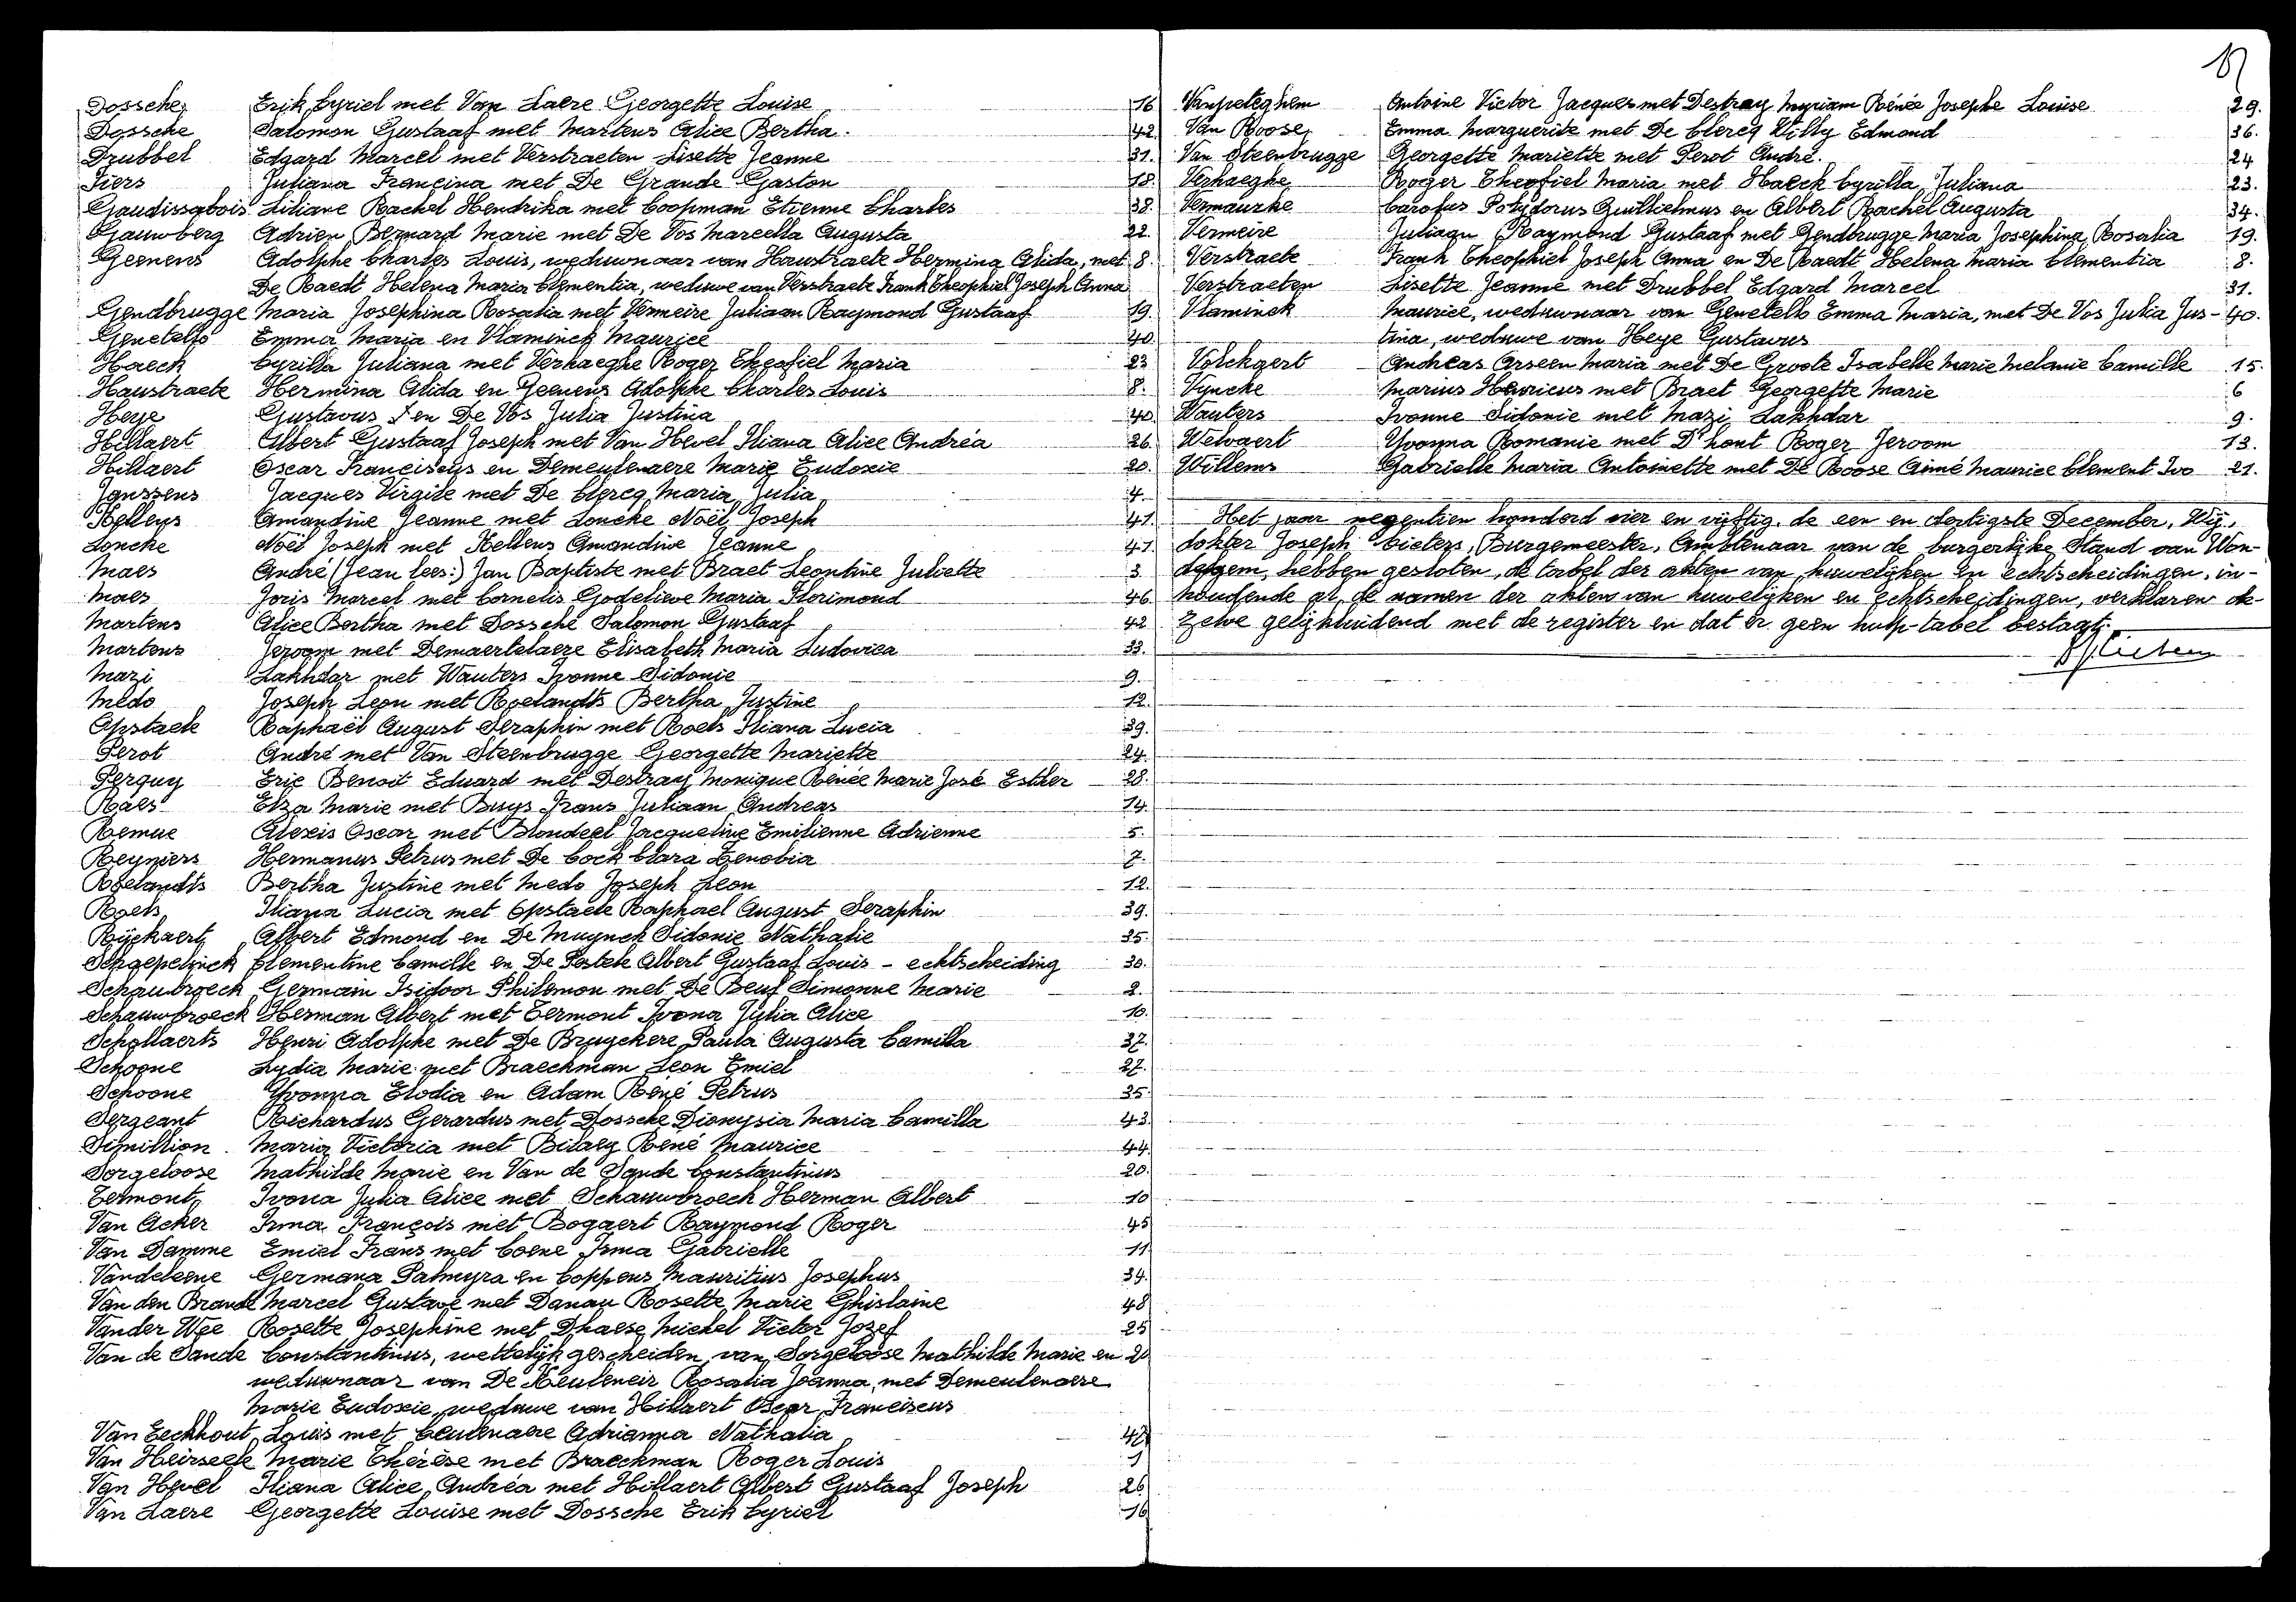 Dossche Erik Cyriel met Van Laere Georgette Louise 16
Dossche Salomon Gustaaf met Martens Alice Bertha. 42
Drubbel Edgard Marcel met Verstraeten Lisette Jeanne 31.
Fiers Juliana Francina met De Grande Gaston 18.
Gaudissabois Liliane Rachel Hendrika met Coopman Etienne Charles 38.
Gauwberg Adrien Bernard Marie met De Vos Marcella Augusta 22.
Geenens Adolphe Charles Louis, weduwnaar van Haustraete Hermina Alida, met 8.
De Raedt Helena Maria Clementia, weduwe van Verstraete Frank Theophiel Joseph Anna
Gendbrugge Maria Josephina Rosalia met Vermeire Juliaan Raymond Gustaaf 19.
Genetello Emma Maria en Vlaminck Maurice 40.
Haeck Cyrilla Juliana met Verhaeghe Roger Theofiel Maria 23
Haustraete Hermina Alida en Geenens Adolphe Charles Louis 8.
Heye Gustavus en De Vos Julia Justina 40.
Hillaert Albert Gustaaf Joseph met Van Hevel Iliana Alice Andréa 26.
Hillaert Oscar Franciscus en Demeulenaere Marie Eudoxie 20.
Janssens Jacques Virgile met De Clercq Maria Julia 4.
Kellens Amandine Jeanne met Loncke Noël Joseph 41.
Loncke Noël Joseph met Kellens Amandine Jeanne 41.
Maes André (Jean lees:) Jan Baptiste met Braet Leontine Juliette 3.
Maes Joris Marcel met Cornelis Godelieve Maria Florimond 46.
Martens Alice Bertha met Dossche Salomon Gustaaf 42
Martens Jeroom met Demaertelaere Elisabeth Maria Ludovica 33.
Mazi Lakhdar met Wauters Ivonne Sidonie 9.
Medo Joseph Leon met Roelandts Bertha Justine 12.
Opstaele Raphaël August Seraphin met Roels Iliana Lucia 39.
Perot André met Van Steenbrugge Georgette Mariette 24.
Perquy Eric Benoit Eduard met Destray Monique Renée Marie José Esther 28.
Raes Elza Marie met Buys Frans Juliaan Andreas 14.
Remue Alexis Oscar met Blondeel Jacqueline Emilienne Adrienne 5.
Reyniers Hermanus Petrus met De Cock Clara Zenobia 7.
Roelandts Bertha Justine met Medo Joseph Leon 12.
Roels Iliana Lucia met Opstaele Raphael August Seraphin 39.
Rijckaert Albert Edmond en De Muynck Sidonie Nathalie 35.
Schaepelynck Clementine Camille en De Pestele Albert Gustaaf Louis - echtscheiding 30.
Schaubroeck Germain Isidoor Philemon met De Beuf Simonne Marie 2.
Schauwbroeck Herman Albert met Termont Ivona Julia Alice 10.
Schollaerts Henri Adolphe met De Bruyckere Paula Augusta Camilla 37.
Schoone Lydia Marie met Braeckman Leon Emiel 27.
Schoone Yvonna Elodia en Adam René Petrus 35.
Sergeant Richardus Gerardus met Dossche Dionysia Maria Camilla 43
Simillion. Maria Victoria met Bilaey René Maurice 44.
Sorgeloose Mathilde Marie en Van de Sande Constantinus 20.
Termont Ivona Julia Alice met Schauwbroeck Herman Albert 10
Van Acker Irma François met Bogaert Raymond Roger 45
Van Damme Emiel Frans met Coene Irma Gabrielle 11
Vandeleene Germana Palmyra en Coppens Mauritius Josephus 34.
Van den Brande Marcel Gustave met Danau Rosette Marie Ghislaine 48
Vander Wée Rosette Josephine met Dhaese Michel Victor Jozef 25
Van de Sande Constantinus, wettelijk gescheiden van Sorgeloose Mathilde Marie en 20
weduwnaar van De Keuleneir Rosalia Joanna, met Demeulenaere
Marie Eudoxie, weduwe van Hillaert Oscar Franciscus
Van Eeckhout Louis met Ceulenaere Adrianna Nathalia
Van Heirseele Marie Thérèse met Braeckman Roger Louis 1
Van Hevel Iliana Alice Andréa met Hillaert Albert Gustaaf Joseph 26
Van Laere Georgette Louise met Dossche Erik Cyriel 16
Vanpeteghem Antoine Victor Jacques met Destray Myriam Rénée Josephe Louise 29.
Van Roose Emma Marguerite met De Clercq Willy Edmond 36.
Van Steenbrugge Georgette Mariette met Perot André. 24
Verhaeghe Roger Theofiel Maria met Haeck Cyrilla Juliana 23.
Vermaercke Carolus Polydorus Guilielmus en Albert Rachel Augusta 34.
Vermeire Juliaan Raymond Gustaaf met Gendbrugge Maria Josephina Rosalia 19.
Verstraete Frank Theophiel Joseph Anna en De Raedt Helena Maria Clementia 8.
Verstraeten Lisette Jeanne met Drubbel Edgard Marcel 31.
Vlaminck Maurice, weduwnaar van Genetello Emma Maria, met De Vos Julia Jus- 40.
tina, weduwe van Heye Gustavus
Volckaert Andreas Arseen Maria met De Groote Isabelle Marie Melanie Camille 15.
Vyncke Marius Henricus met Braet Georgette Marie 6
Wauters Ivonne Sidonie met Mazi Lakhdar 9.
Welvaert Yvonna Romanie met D'hont Roger Jeroom 13.
Willems Gabrielle Maria Antoinette met De Roose Aimé Maurice Clement Ivo 21.
Het jaar negentien honderd vier en vijftig, de een en dertigste December, Wij,
dokter Joseph Cieters, Burgemeester, Ambtenaar van de burgerlijke Stand van Won-
delgem, hebben gesloten, de tabel der akten van huwelijken en echtscheidingen, in-
houdende al de namen der aktens van huwelijken en echtscheidingen, verklaren de-
zelve gelijkluidend met de register en dat er geen hulp-tabel bestaat.